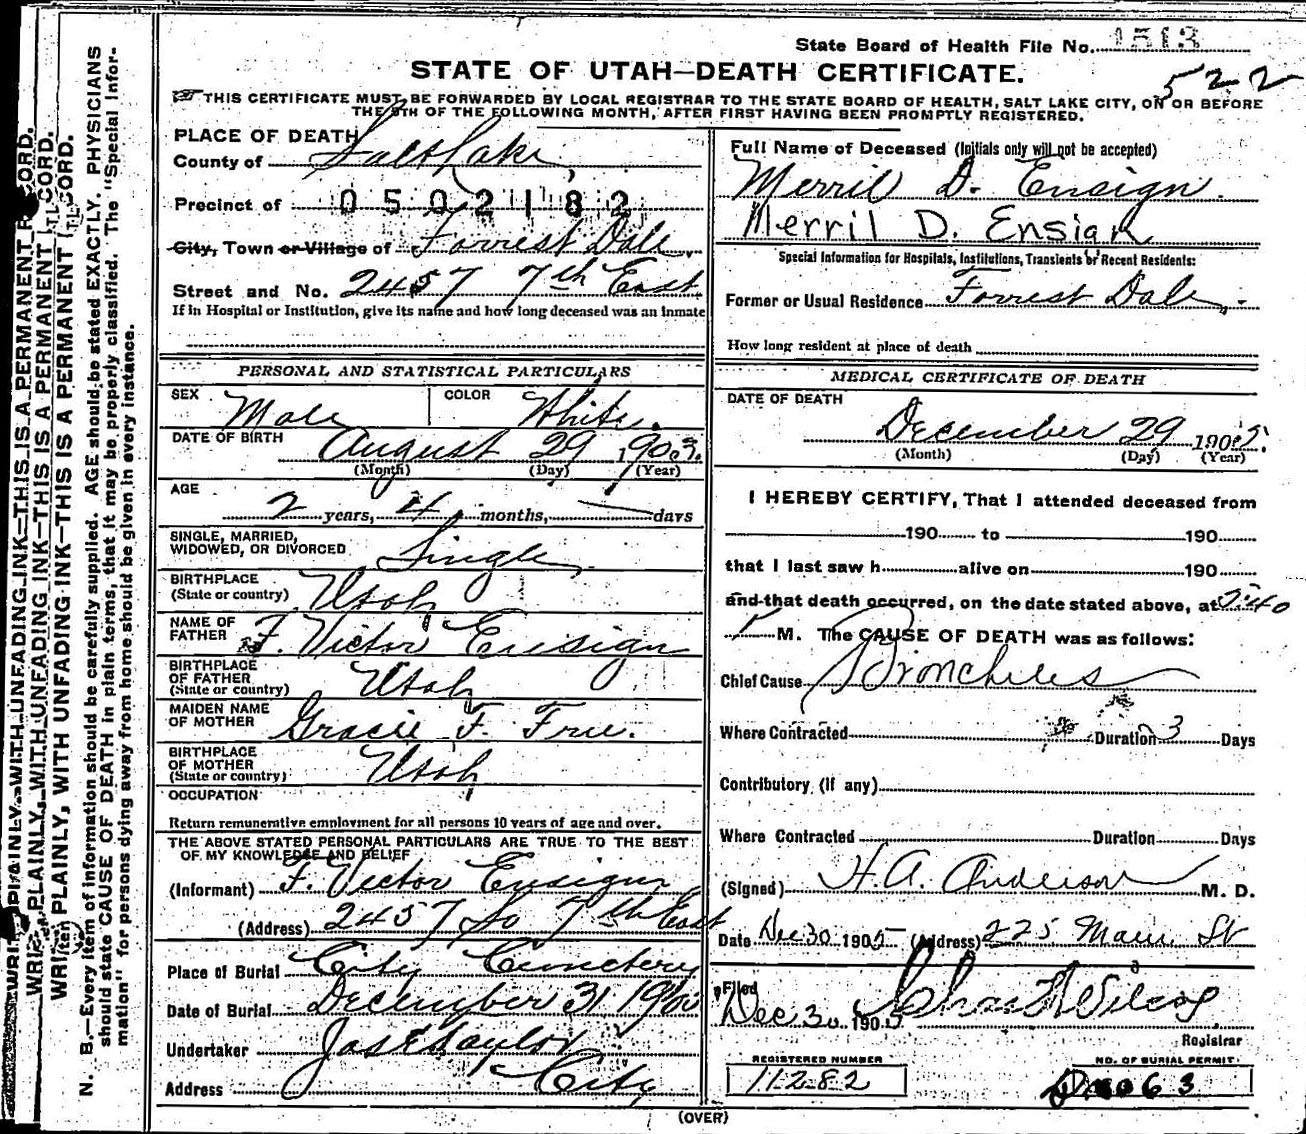 State Board of Health File No. 1513
522
STATE OF UTAH—DEATH CERTIFICATE.
THIS CERTIFICATE MUST BE FORWARDED BY LOCAL REGISTRAR TO THE STATE BOARD OF HEALTH, SALT LAKE CITY, ON OR BEFORE
THE 5TH OF THE FOLLOWING MONTH, AFTER FIRST HAVING BEEN PROMPTLY REGISTERED.
PLACE OF DEATH
County of Salt Lake
Precinct of 0502182
City, Town or Village of Forrest Dale
Street and No. 2457 7th East
If in Hospital or Institution, give its name and how long deceased was an inmate
PERSONAL AND STATISTICAL PARTICULARS
SEX Male COLOR White.
DATE OF BIRTH August 29 1903.
(Month) (Day) (Year)
AGE
2 years, 4 months, days
SINGLE, MARRIED,
WIDOWED, OR DIVORCED Single
BIRTHPLACE
(State or country) Utah
NAME OF
FATHER F. Victor Ensign
BIRTHPLACE
OF FATHER
(State or country) Utah
MAIDEN NAME
OF MOTHER Gracie F. Free.
BIRTHPLACE
OF MOTHER
(State or country) Utah
OCCUPATION
Return remunerative employment for all persons 10 years of age and over.
THE ABOVE STATED PERSONAL PARTICULARS ARE TRUE TO THE BEST
OF MY KNOWLEDGE AND BELIEF
(Informant) F. Victor Ensign
(Address) 2457 So 7th East
Place of Burial City Cemetery
Date of Burial December 31 190
Undertaker Jos E Taylor
Address City
Full Name of Deceased (Initials only will not be accepted)
Merril D. Ensign.
Merril D. Ensign
Special Information for Hospitals, Institutions, Transients or Recent Residents:
Former or Usual Residence Forrest Dale
How long resident at place of death
MEDICAL CERTIFICATE OF DEATH
DATE OF DEATH
December 29 1905.
(Month) (Day) (Year)
I HEREBY CERTIFY, That I attended deceased from
190 to 190
that I last saw h alive on 190
and that death occurred, on the date stated above, at 240
P M. The CAUSE OF DEATH was as follows:
Chief Cause Bronchites
Where Contracted Duration 3 Days
Contributory (if any)
Where Contracted Duration Days
(Signed) H. A. Anderson M. D.
Date Dec 30 1905 (Address) 225 Main St
Filed
Dec 30 1905 Wilcox
Registrar
REGISTERED NUMBER
11282
NO. OF BURIAL PERMIT
063
(OVER)
WRITE PLAINLY, WITH UNFADING INK—THIS IS A PERMANENT RECORD.
WRITE PLAINLY, WITH UNFADING INK—THIS IS A PERMANENT RECORD.
WRITE PLAINLY, WITH UNFADING INK—THIS IS A PERMANENT RECORD.
N. B.—Every item of information should be carefully supplied. AGE should be stated EXACTLY. PHYSICIANS
should state CAUSE OF DEATH in plain terms, that it may be properly classified. The "Special Infor-
mation" for persons dying away from home should be given in every instance.